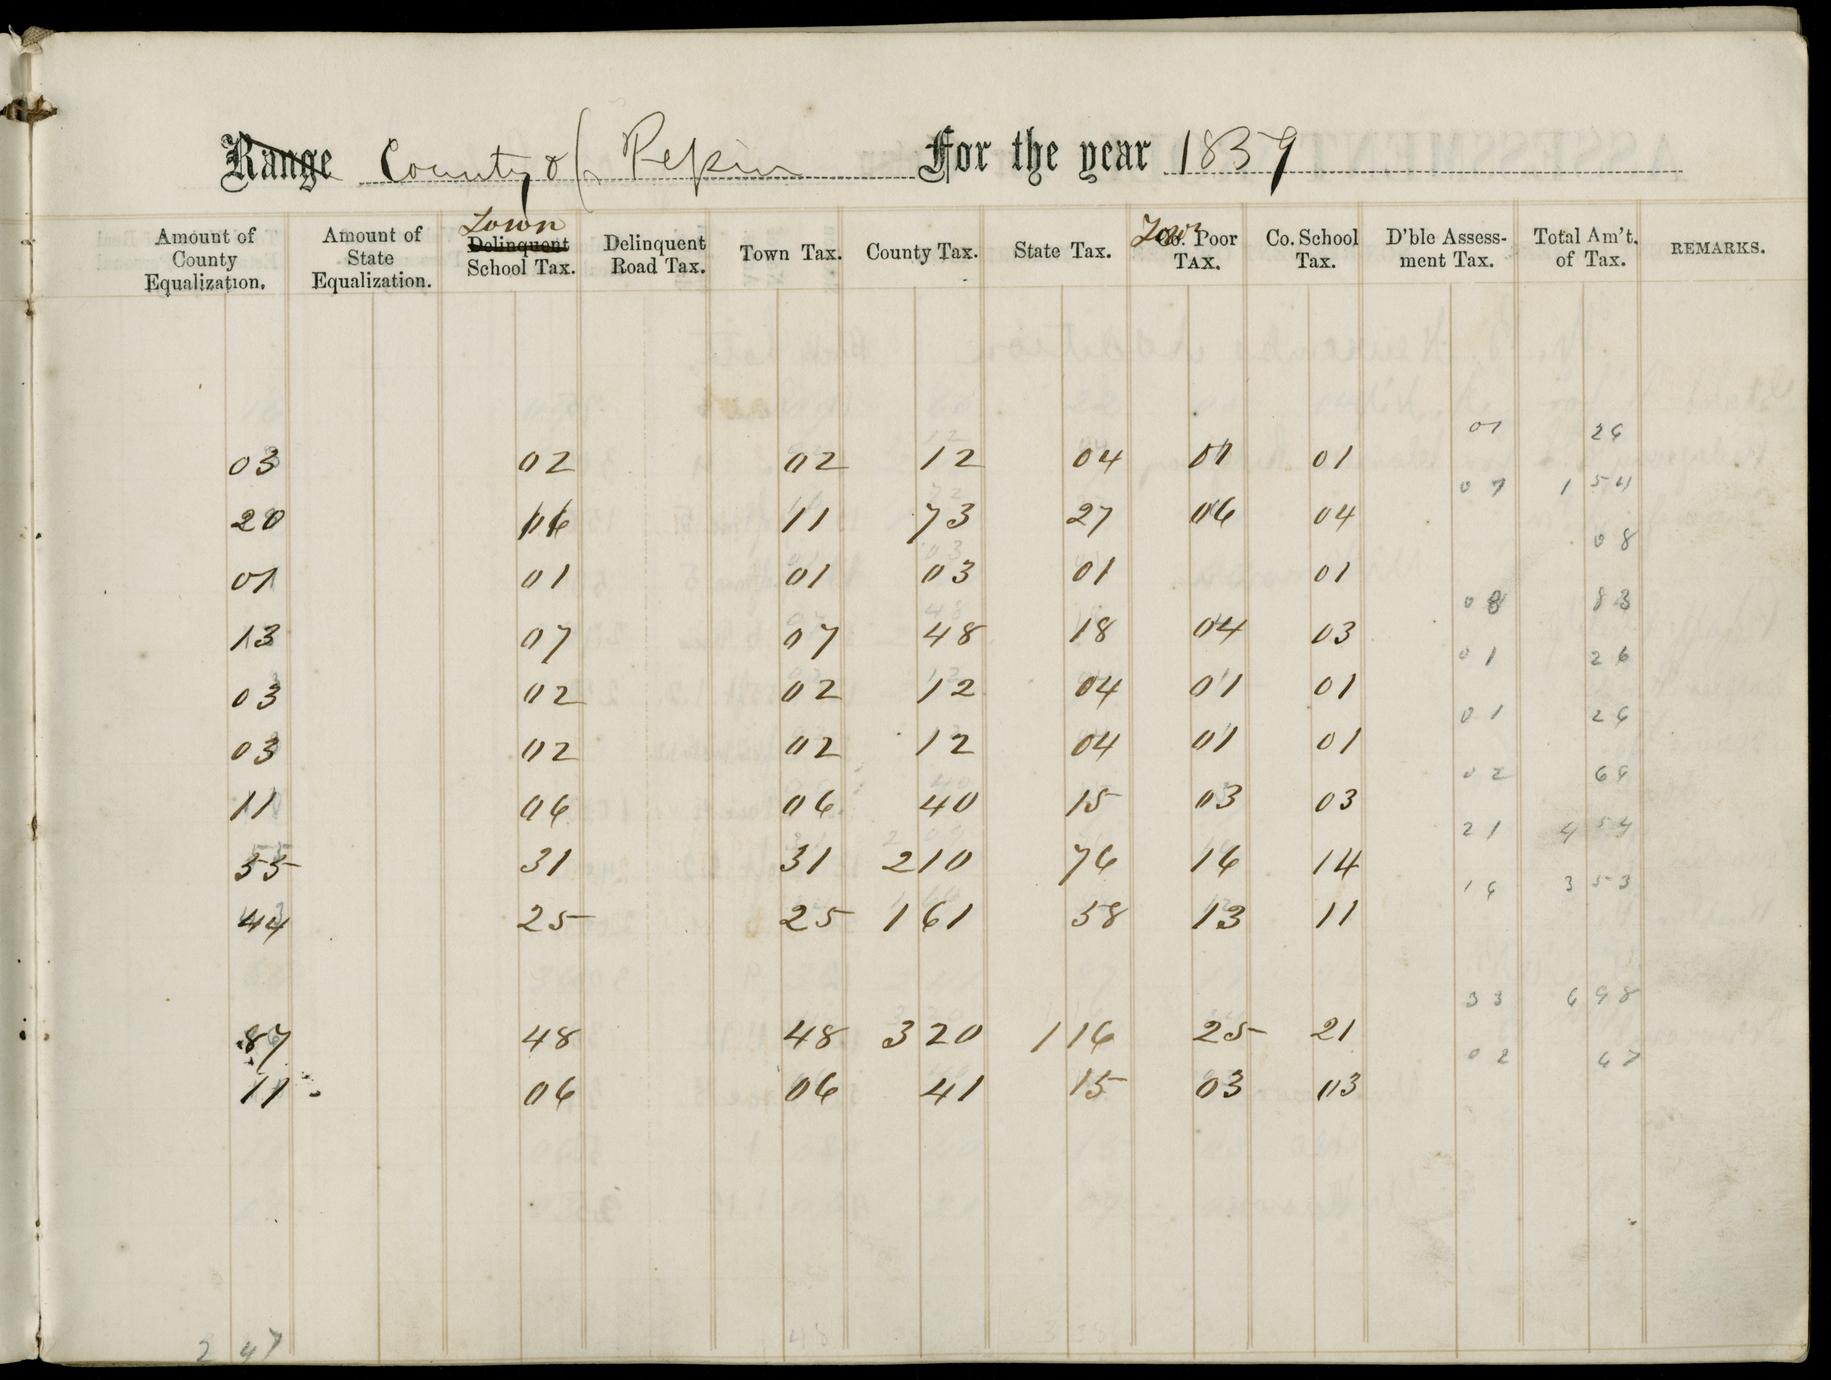 Range County of Pepin For the year 1859
Amount of County Equalization. Amount of State Equalization. Town Delinquent School Tax. Delinquent Road Tax. Town Tax. County Tax. State Tax. Town Co. Poor TAX. Co. School Tax. D'ble Assess-ment Tax. Total Am't. of Tax. REMARKS.
01 26
03 02 02 12 04 01 01
07 1 54
20 16 11 73 27 06 04
08
01 01 01 03 01 01
08 83
13 07 07 48 18 04 03
01 26
03 02 02 12 04 01 01
01 26
03 02 02 12 04 01 01
02 69
11 06 06 40 15 03 03
21 4 54
55 31 31 2 10 76 16 14
16 3 53
44 25 25 1 61 58 13 11
33 6 98
87 48 48 3 20 1 16 25 21
02 67
11 06 06 41 15 03 03
2 47 48